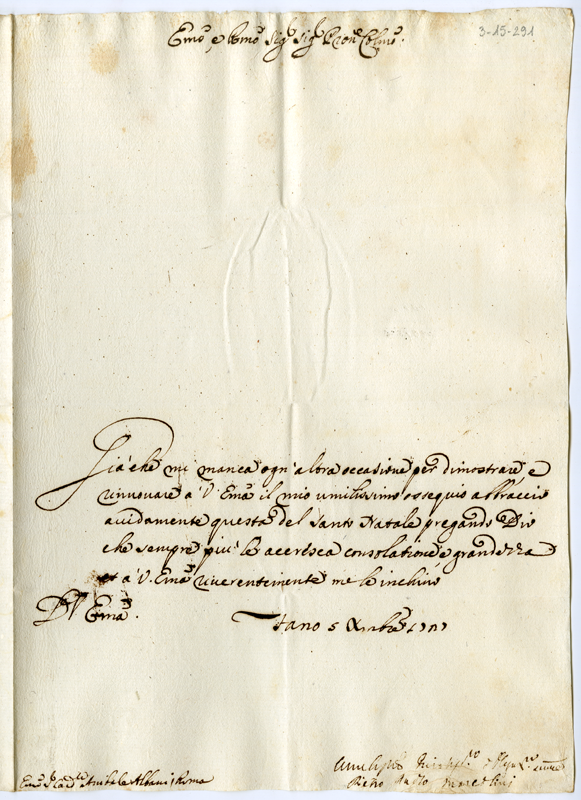 Emo, e Rmo Sigr Sigr Pron Colmo.
3-15-291
Già che mi manca ogn altra occasione per dimostrare, e
rinnovare à V. Ema il mio umilissimo ossequio abbraccio
avidamente questa del Santo Natale pregando Dio
che sempre più le accresca consolatione, e grandezza
et à V. Ema riverentemente me le inchino
D V. Ema.
Fano 5 Xmbre
Emo Sr Annibale Albani Roma